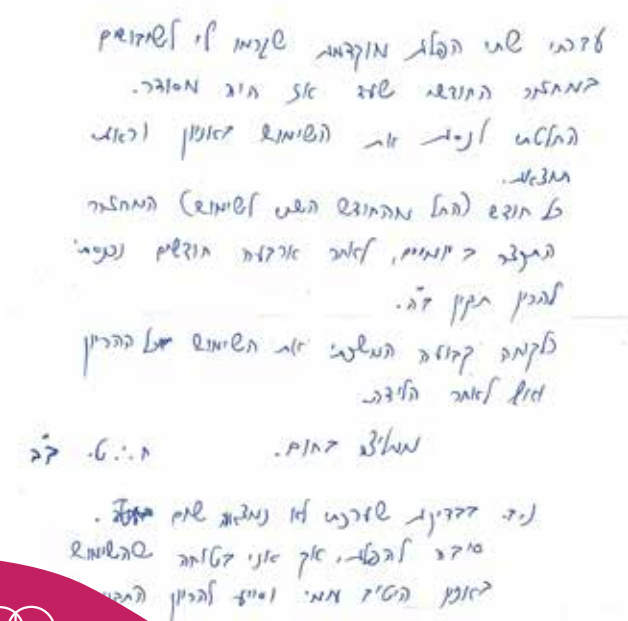 עברתי שתי הפלות מוקדמות שגרמו לי לשיבושים
במחזור החודשי שעד אז היה מסודר.
החלטתי לנסות את השימוש באופן וראיתי
תוצאות.
כל חודש (החל מהחודש השני לשימוש) המחזור
התקצר ב יומיים, לאחר ארבעה חודשים נכנסתי
להריון תקין ב"ה.
כלקוחה קבועה המשכתי את השימוש בהריון
ואף לאחר הלידה.
ממליצה בחום. ח.ט. ב"ב
נ.ב. בבדיקות שערכתי לא נמצאה שום
סיבה להפלות, אך אני בטוחה שהשימוש
היטיב עמי וסייע להריון